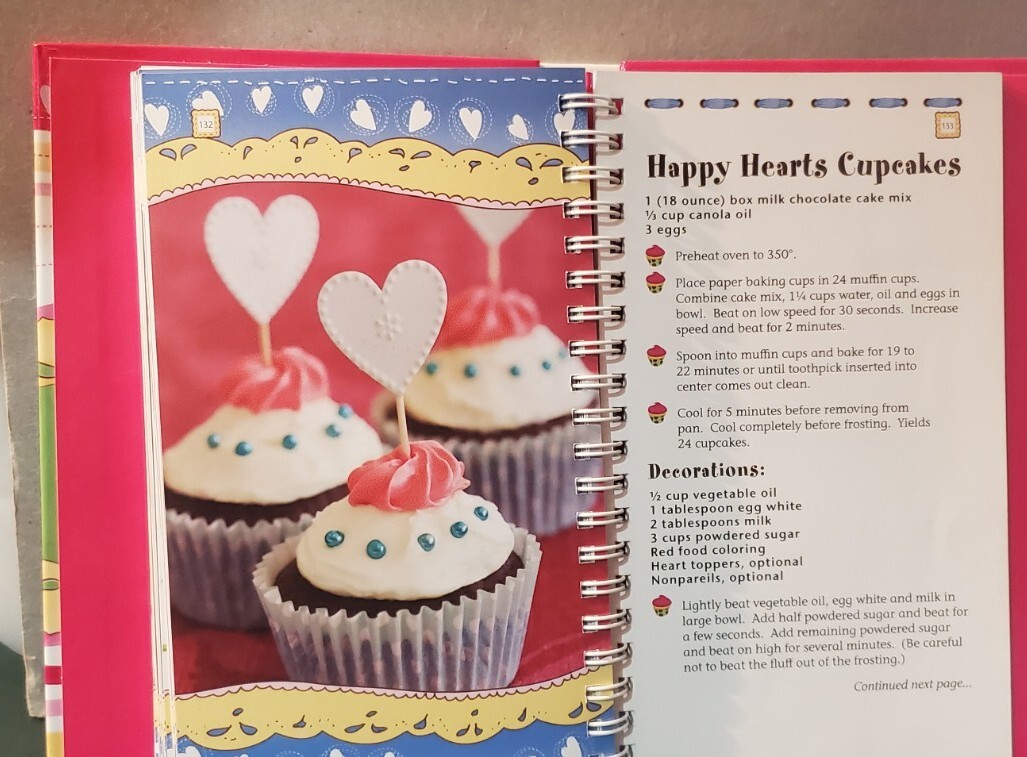 132
133
Happy Hearts Cupcakes
1 (18 ounce) box milk chocolate cake mix
⅓ cup canola oil
3 eggs
Preheat oven to 350°.
Place paper baking cups in 24 muffin cups.
Combine cake mix, 1¼ cups water, oil and eggs in
bowl. Beat on low speed for 30 seconds. Increase
speed and beat for 2 minutes.
Spoon into muffin cups and bake for 19 to
22 minutes or until toothpick inserted into
center comes out clean.
Cool for 5 minutes before removing from
pan. Cool completely before frosting. Yields
24 cupcakes.
Decorations:
½ cup vegetable oil
1 tablespoon egg white
2 tablespoons milk
3 cups powdered sugar
Red food coloring
Heart toppers, optional
Nonpareils, optional
Lightly beat vegetable oil, egg white and milk in
large bowl. Add half powdered sugar and beat for
a few seconds. Add remaining powdered sugar
and beat on high for several minutes. (Be careful
not to beat the fluff out of the frosting.)
Continued next page...